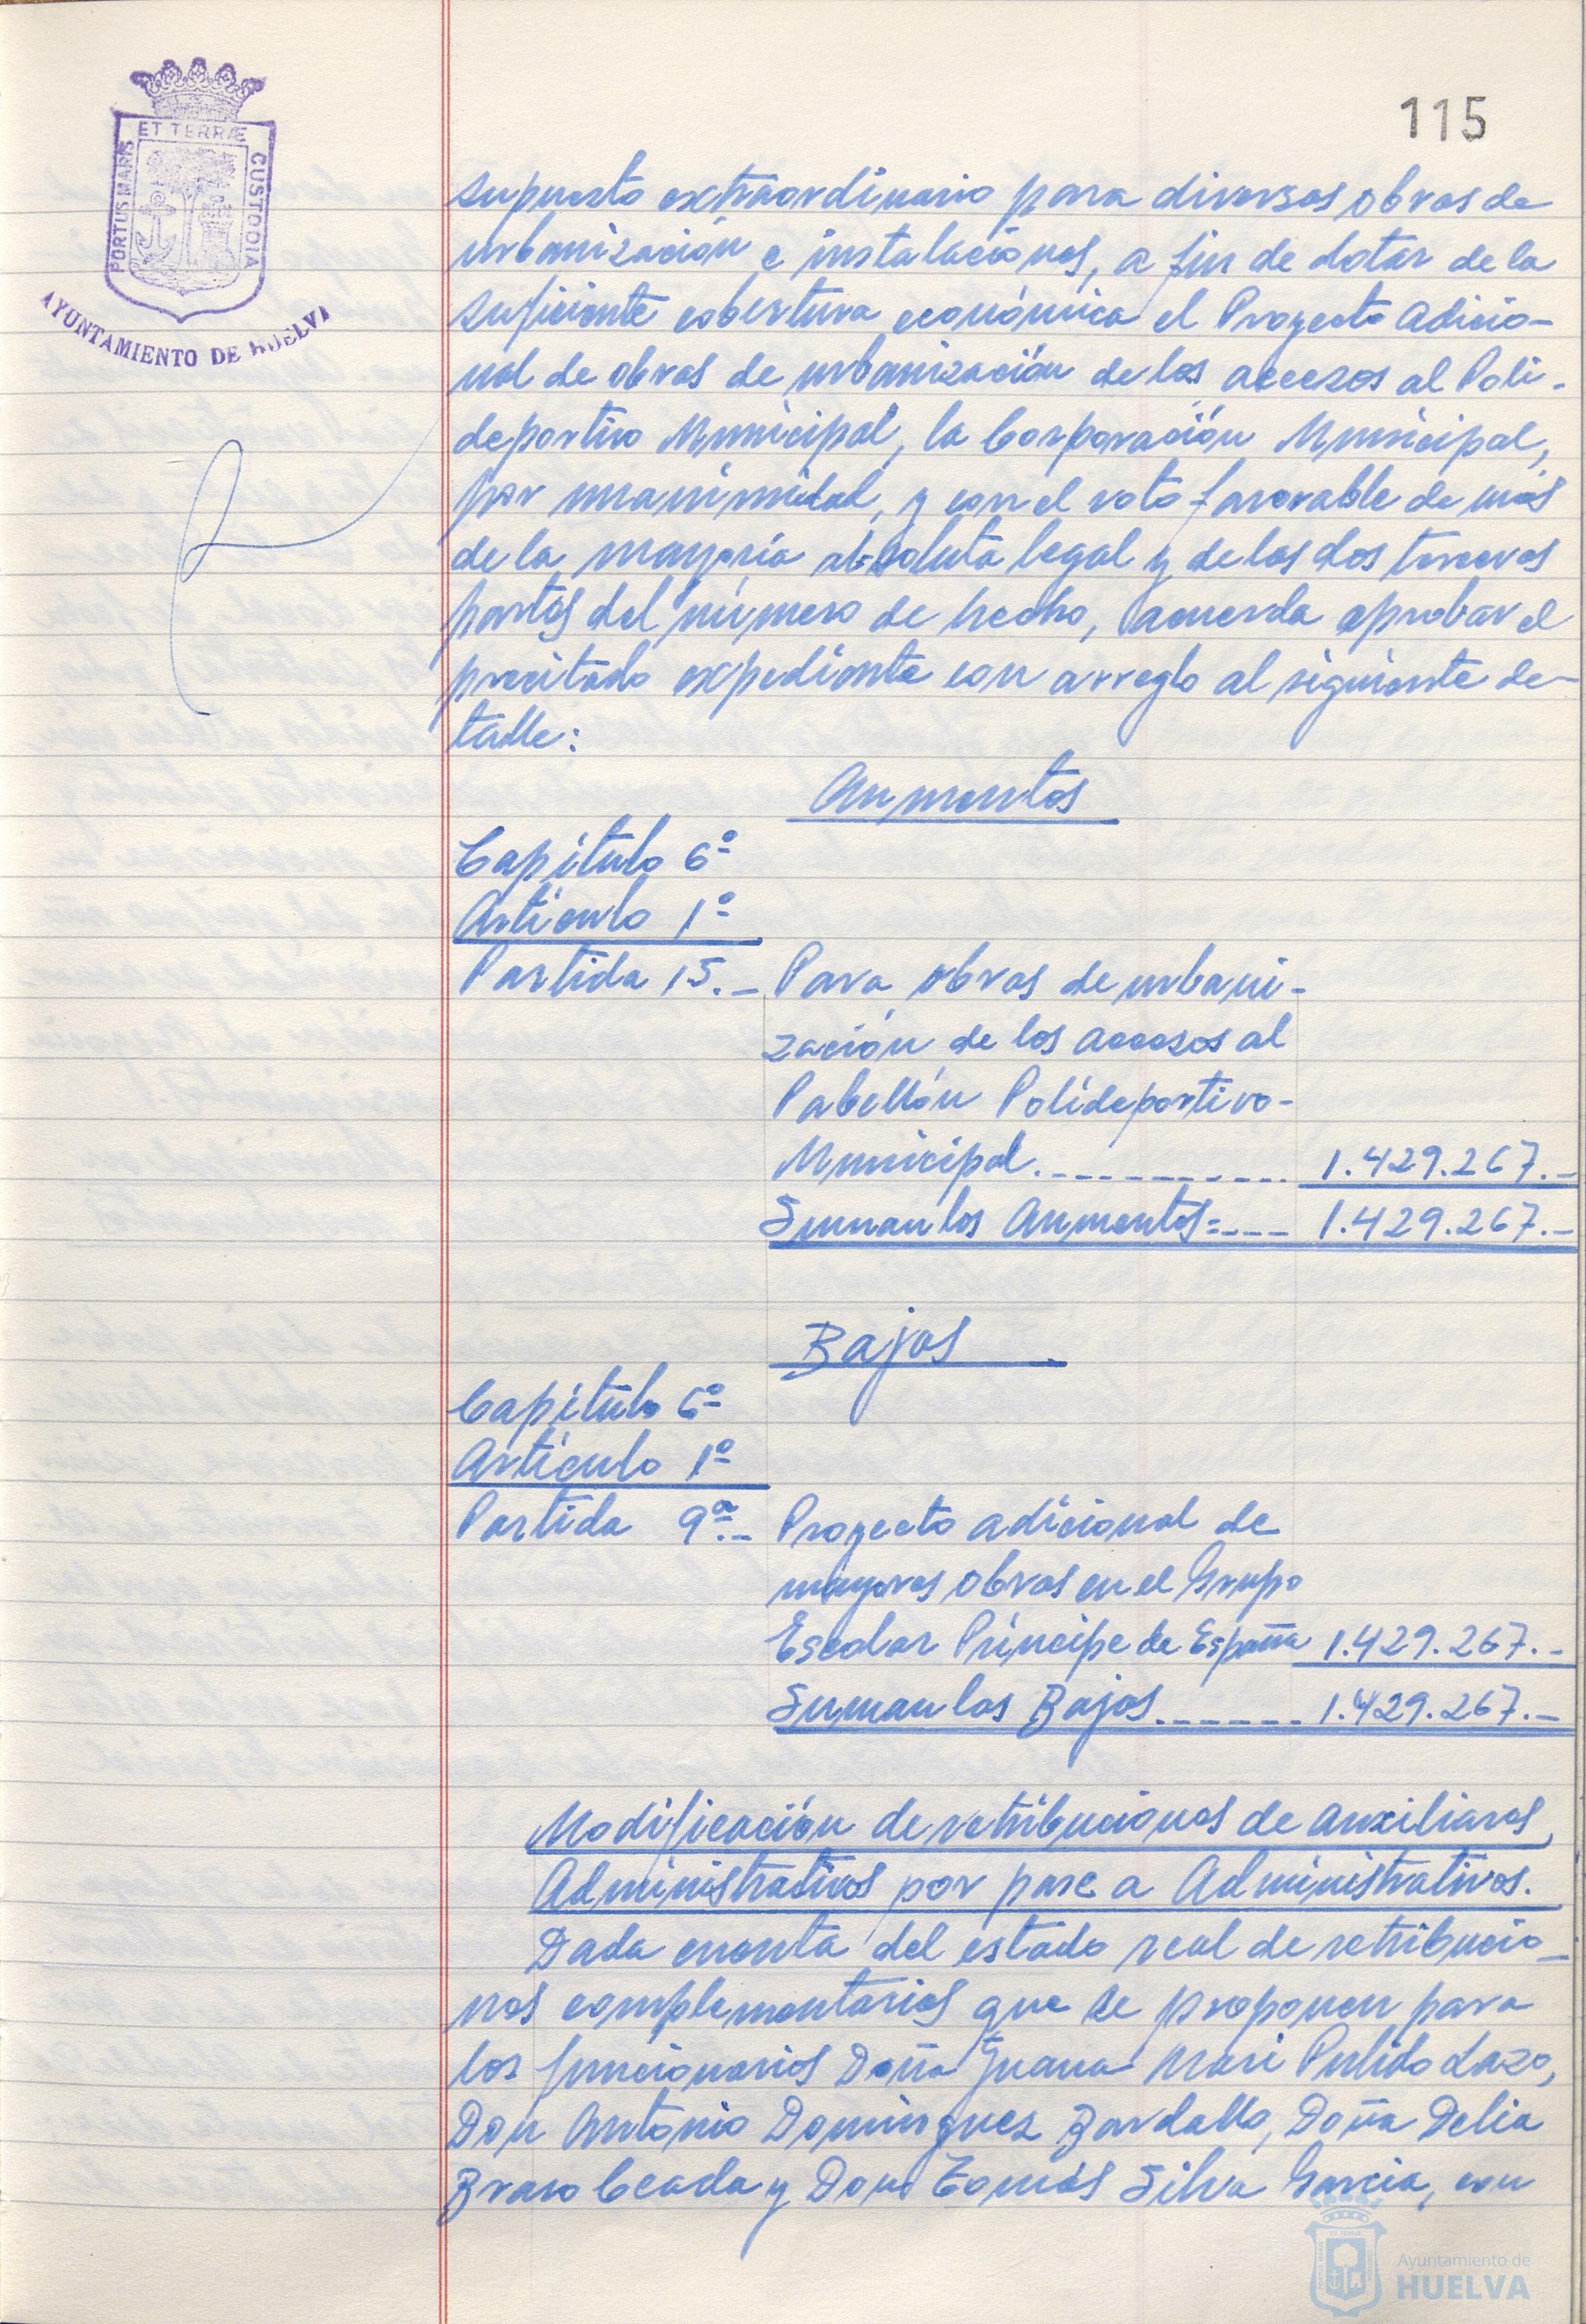 115
ET TERRÆ
PORTUS MARIS
CUSTODIA
AYUNTAMIENTO DE HUELVA
supuesto extraordinario para diversas obras de
urbanización e instalaciones, a fin de dotar de la
suficiente cobertura económica el Proyecto adicio-
nal de obras de urbanización de los accesos al Poli-
deportivo Municipal, la Corporación Municipal,
por unanimidad, y con el voto favorable de más
de la mayoría absoluta legal y de las dos terceras
partes del número de hecho, acuerda aprobar el
precitado expediente con arreglo al siguiente de-
talle:
Aumentos
Capítulo 6º
Artículo 1º
Partida 15.- Para obras de urbani-
zación de los accesos al
Pabellón Polideportivo-
Municipal.---------- 1.429.267.-
Suman los Aumentos=---- 1.429.267.-
Bajas
Capítulo 6º
Artículo 1º
Partida 9ª.- Proyecto adicional de
mayores obras en el Grupo
Escolar Príncipe de España 1.429.267.-
Suman las Bajas.------ 1.429.267.-
Modificación de retribuciones de Auxiliares
Administrativos por pase a Administrativos.
Dada cuenta del estado real de retribucio-
nes complementarias que se proponen para
los funcionarios Doña Juana Mari Pulido Lazo,
Don Antonio Domínguez Bardallo, Doña Delia
Bravo Ceada y Don Tomás Silva García, con
Ayuntamiento de
HUELVA